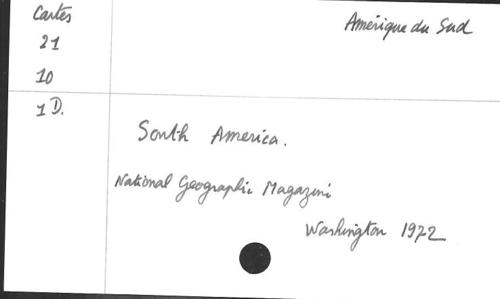 Cartes
21
10
1 D.
Amérique du Sud
South America.
National Geographic Magazine
Washington 1972